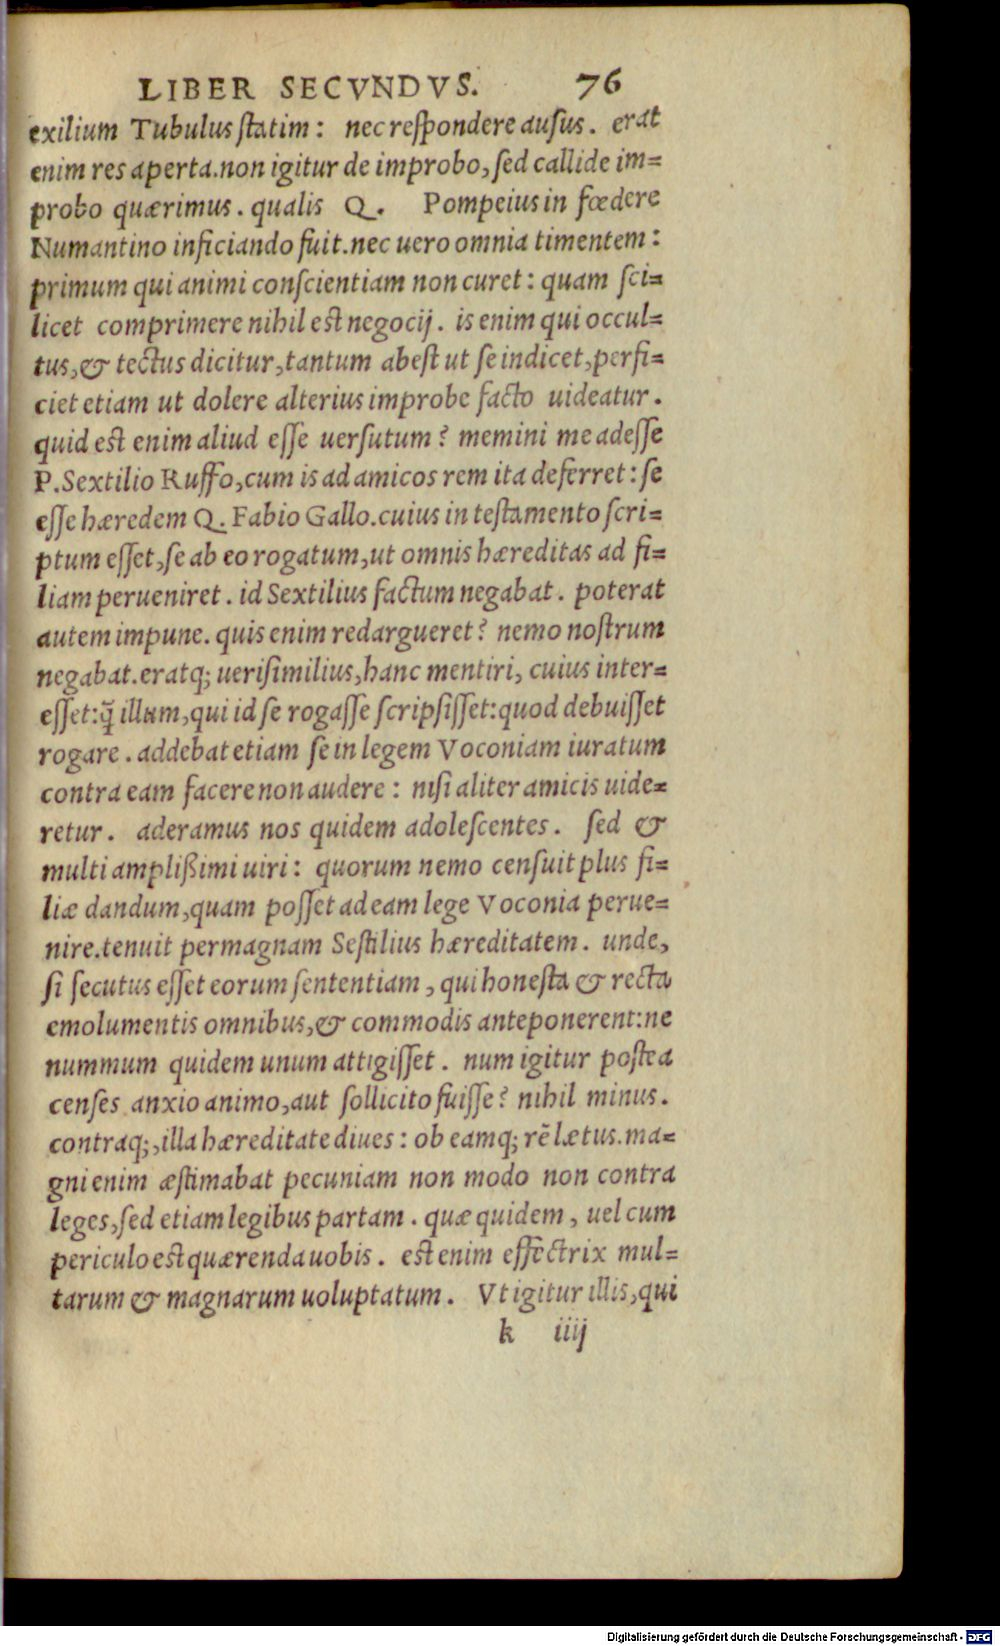 LIBER SECVNDVS. 76
exilium Tubulus ſtatim: nec reſpondere auſus. erat
enim res aperta.non igitur de improbo, ſed callide im=
probo quærimus. qualis Q. Pompeius in fœdere
Numantino inficiando fuit.nec uero omnia timentem:
primum qui animi conſcientiam non curet: quam ſci=
licet comprimere nihil eſt negocij. is enim qui occul=
tus,& tectus dicitur,tantum abeſt ut ſe indicet,perfi=
ciet etiam ut dolere alterius improbe facto uideatur.
quid eſt enim aliud eſſe uerſutum? memini me adeſſe
P.Sextilio Ruffo,cum is ad amicos rem ita deferret: ſe
eſſe hæredem Q. Fabio Gallo.cuius in teſtamento ſcri=
ptum eſſet,ſe ab eo rogatum,ut omnis hæreditas ad fi=
liam perueniret. id Sextilius factum negabat. poterat
autem impune. quis enim redargueret? nemo noſtrum
negabat.eratq; ueriſimilius,hanc mentiri, cuius inter=
eſſet:q̃ illum,qui id ſe rogaſſe ſcripſiſſet:quod debuiſſet
rogare. addebat etiam ſe in legem Voconiam iuratum
contra eam facere non audere: niſi aliter amicis uide=
retur. aderamus nos quidem adoleſcentes. ſed &
multi ampliſsimi uiri: quorum nemo cenſuit plus fi=
liæ dandum,quam poſſet ad eam lege Voconia perue=
nire.tenuit permagnam Seſtilius hæreditatem. unde,
ſi ſecutus eſſet eorum ſententiam, qui honeſta & recta
emolumentis omnibus,& commodis anteponerent:ne
nummum quidem unum attigiſſet. num igitur poſtea
cenſes anxio animo,aut ſollicito fuiſſe? nihil minus.
contraq;,illa hæreditate diues: ob eamq; rē lætus.ma=
gni enim æſtimabat pecuniam non modo non contra
leges,ſed etiam legibus partam. quæ quidem, uel cum
periculo eſt quærenda uobis. eſt enim effectrix mul=
tarum & magnarum uoluptatum. Vt igitur illis,qui
k iiij
Digitalisierung gefördert durch die Deutsche Forschungsgemeinschaft - DFG